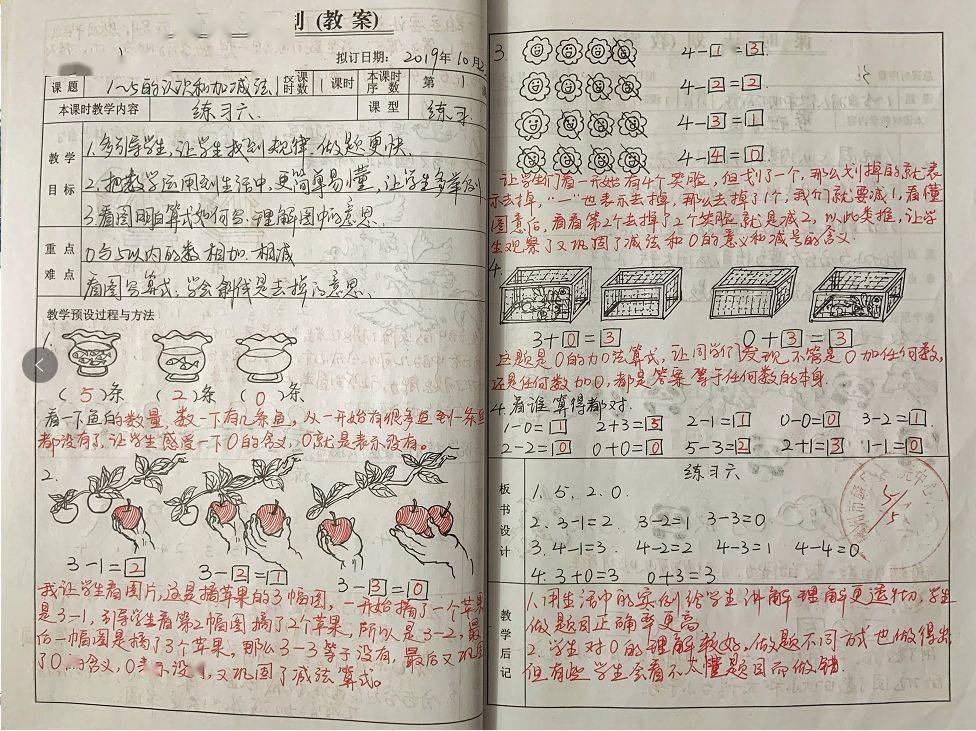 划(教案)
拟订日期:2019年10月2
课题 1~5的认识和加减法 课时数 1课时 本课时序数 第
本课时教学内容 练习六 课型 练习
教学目标
1.多引导学生,让学生找到规律,做题更快.
2.把数学运用到生活中,更简单易懂,让学生多举例
3.看图明白算式如何写.理解图中的意思.
重点难点
0与5以内的数相加.相减
看图写算式.学会斜线是去掉的意思.
教学预设过程与方法
1.
(5)条 (2)条 (0)条
看一下鱼的数量,数一下有几条鱼,从一开始有很多鱼到一条鱼
都没有了.让学生感受一下0的含义,0就是表示没有。
2.
3-1=2 3-2=1 3-3=0
我让学生看图片,这是摘苹果的3幅图,一开始摘了一个苹果
是3-1,引导学生看第2幅图摘了2个苹果,所以是3-2,最
后一幅图是摘了3个苹果,那么3-3等于没有,最后又巩固
了0的含义,0表示没有,又巩固了减法算式。
3.
4-1=3
4-2=2
4-3=1
4-4=0
让学生们看一开始有4个笑脸,但划了一个,那么划掉的就表
示去掉,"一"也表示去掉,那么去掉了1个,我们就要减1,看懂
图意后,看看第2个去掉了2个笑脸就是减2,以此类推,让学
生观察了又巩固了减法和0的意义和减号的含义.
4.
3+0=3 0+3=3
这题是0的加法算式,让同学们发现,不管是0加任何数,
还是任何数加0,都是答案等于任何数的本身.
4.看谁算得都对.
1-0=1 2+3=5 2-1=1 0-0=0 3-2=1
2-2=0 0+0=0 5-3=2 2+1=3 1-1=0
板书设计
练习六
1. 5, 2. 0.
2. 3-1=2 3-2=1 3-3=0
3. 4-1=3. 4-2=2 4-3=1 4-4=0
4. 3+0=3 0+3=3
5/5
教学后记
1.用生活中的实例给学生讲解理解更透彻,学生
做题目正确率更高
2.学生对0的理解较好,做题不同方式也做得出
但有些学生会看不太懂题目而做错.